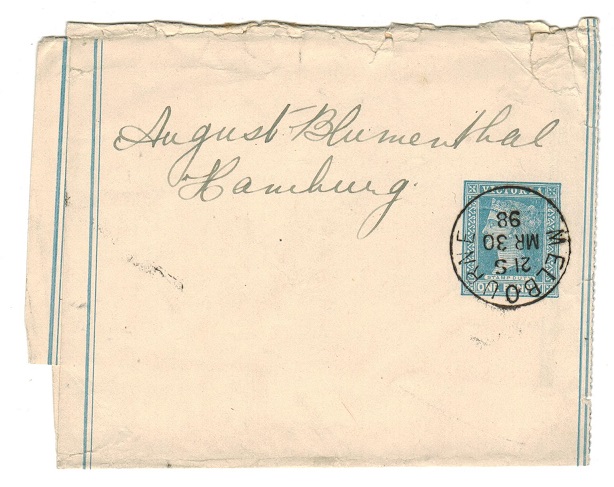 August Blumenthal
Hamburg.
VICTORIA
STAMP DUTY
ONE PENNY
MELBOURNE
21 S
MR 30
98